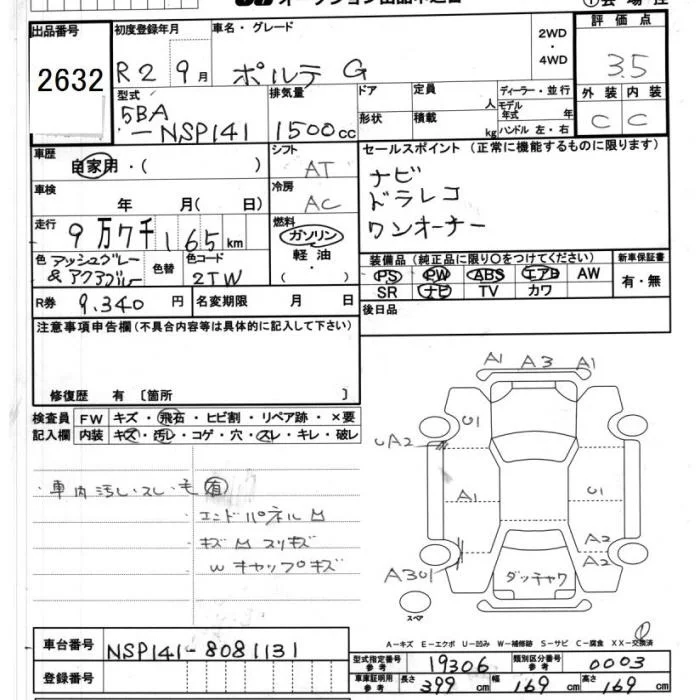 出品番号 初度登録年月 車名・グレード 2WD・4WD 評価点
2632 R2 9月 ポルテ G 3.5
型式 5BA-NSP141 排気量 1500cc ドア 定員 人 ディーラー・並行 外装 内装
形状 積載 kg モデル年式 年 ハンドル 左・右 C C
車歴 自家用・( ) シフト AT セールスポイント(正常に機能するものに限ります)
車検 年 月( 日) 冷房 AC ナビ
ドラレコ
走行 9万7千165km 燃料 ガソリン 軽油・( ) ワンオーナー
色 アッシュグレー&アクアブルー 色替 色コード 2TW 装備品(純正品に限り○をつけてください) 新車保証書
PS PW ABS エアB AW 有・無
SR ナビ TV カワ
R券 9,340円 名変期限 月 日 後日品
注意事項申告欄(不具合内容等は具体的に記入して下さい)
修復歴 有〔箇所 〕
検査員 FW キズ・飛石・ヒビ割・リペア跡・×要
記入欄 内装 キズ・汚レ・コゲ・穴・スレ・キレ・破レ
・車内汚レ・スレ・毛有
エンドパネル凹
キズ凹スリキズ
Wキャップキズ
A1 A3 A1
U1
UA2
A1 U1
A2
A2
A301
ダッチャク
スペア
A-キズ E-エクボ U-凹み W-補修跡 S-サビ C-腐食 XX-交換済
車台番号 NSP141-8081131
登録番号
型式指定番号参考 19306 類別区分番号参考 0003
車庫証明用参考 長さ 399cm 幅 169cm 高さ 169cm